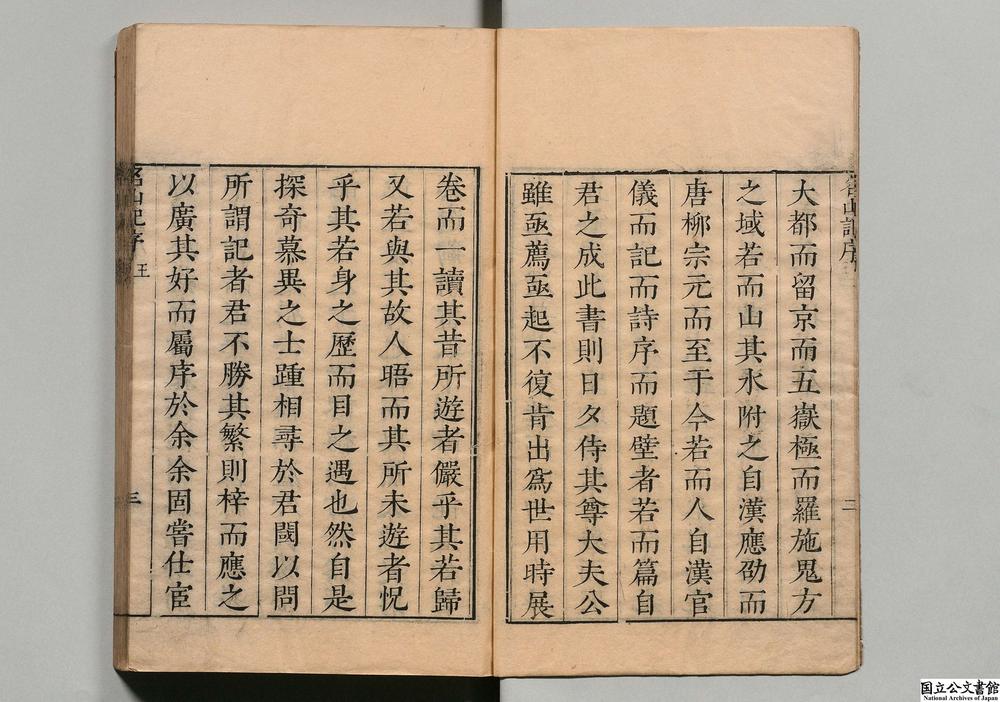 大都而留京而五嶽極而羅施鬼方
之域若而山其水附之自漢應劭而
唐柳宗元而至于今若而人自漢官
儀而記而詩序而題壁者若而篇自
君之成此書則日夕侍其尊大夫公
雖亟薦亟起不復肯出爲世用時展
卷而一讀其昔所遊者儼乎其若歸
又若與其故人晤而其所未遊者怳
乎其若身之歷而目之遇也然自是
探奇慕異之士踵相尋於君閾以問
所謂記者君不勝其繁則梓而應之
以廣其好而屬序於余余固嘗仕宦
名山記序
王
三
国立公文書館
National Archives of Japan